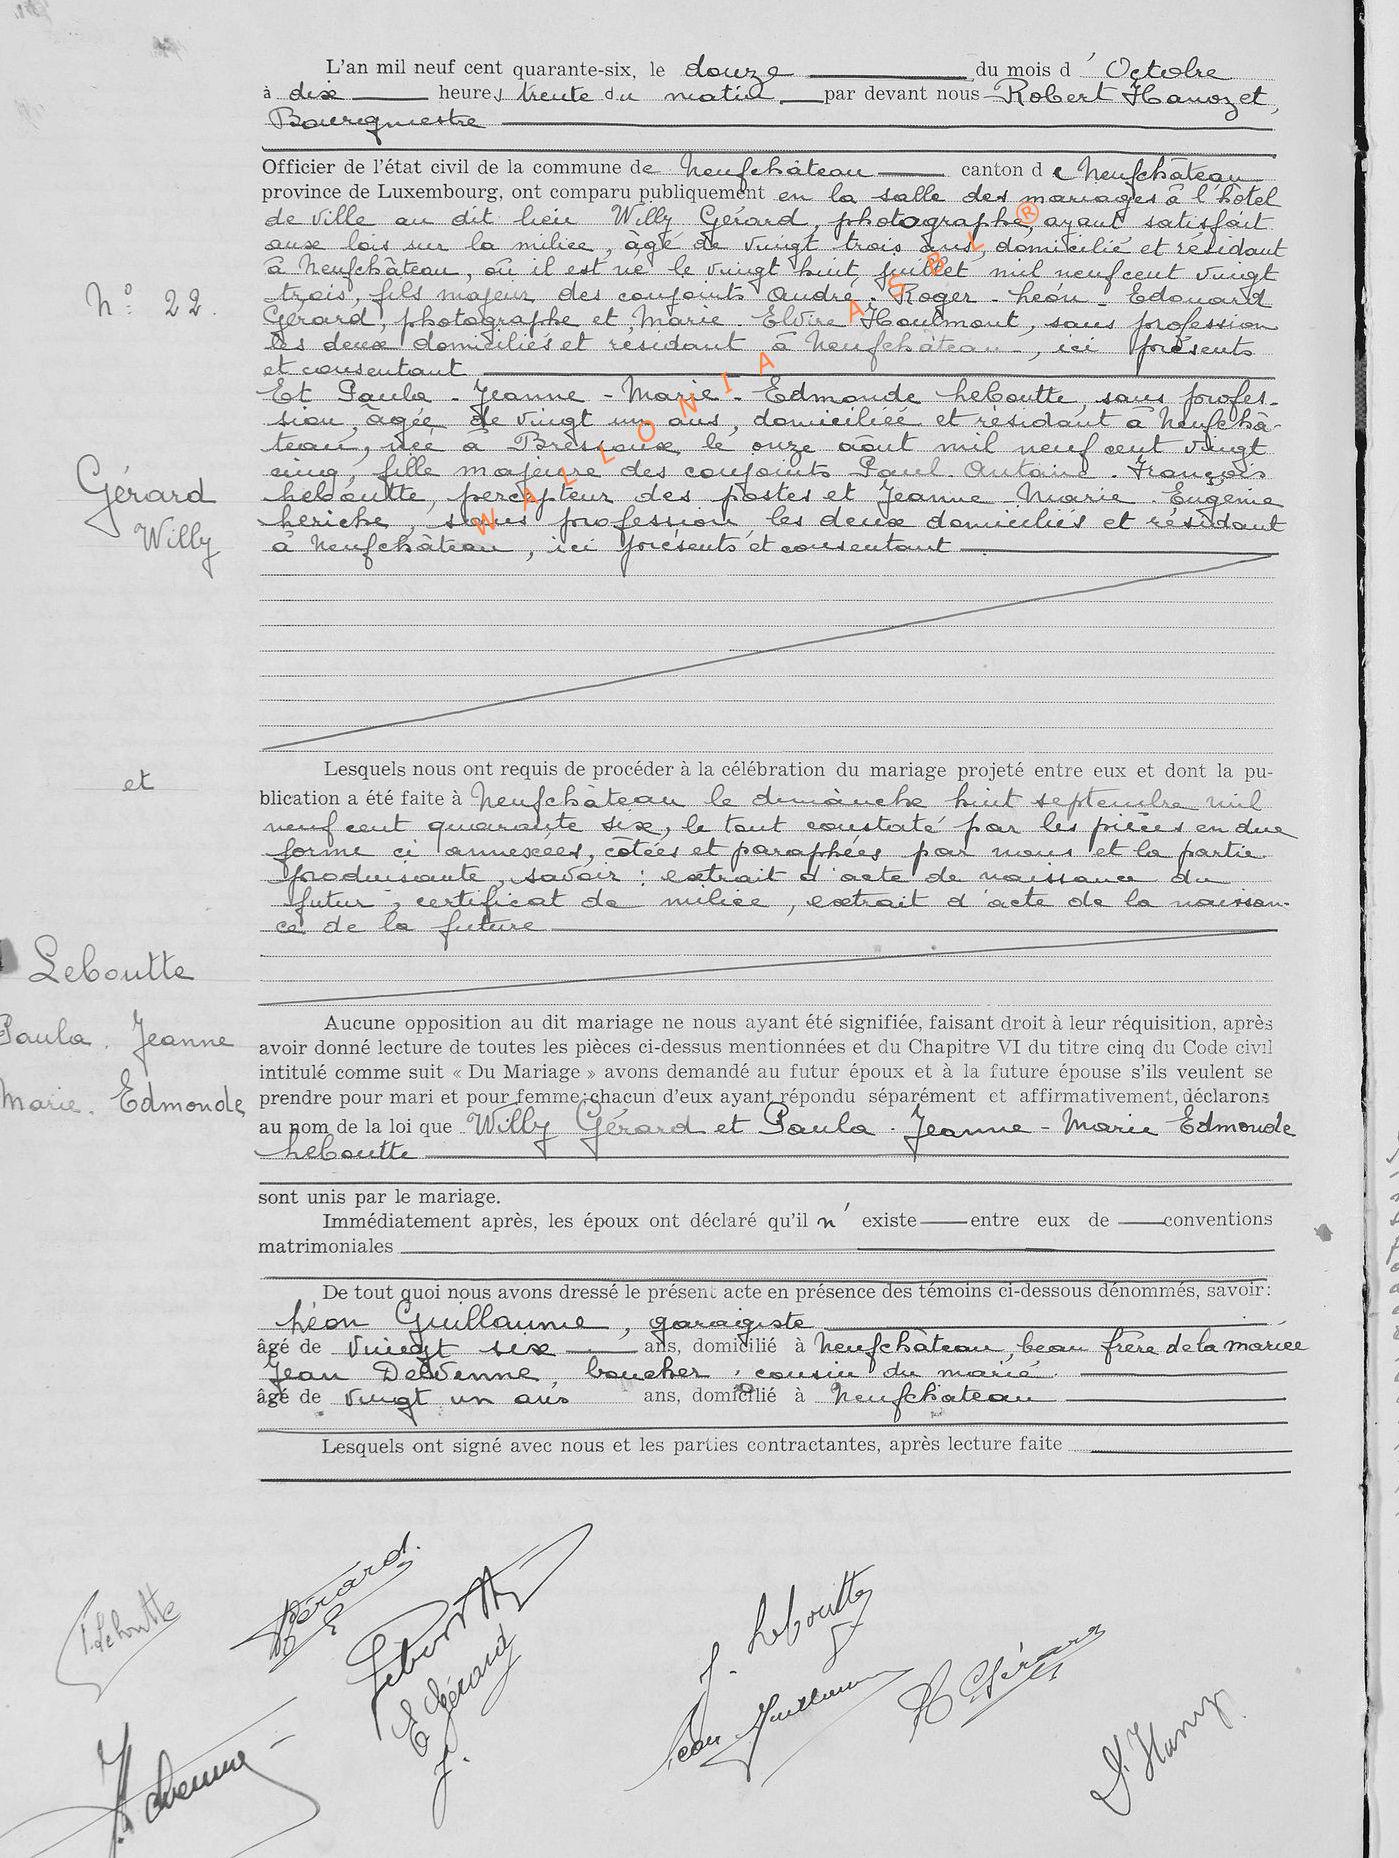 L'an mil neuf cent quarante-six, le douze du mois d' Octobre
à dix heures trente du matin par devant nous Robert Hanozet,
Bourgmestre
Officier de l'état civil de la commune de Neufchâteau canton de Neufchâteau
province de Luxembourg, ont comparu publiquement en la salle des mariages à l'hôtel
de ville au dit lieu Willy Gérard, photographe, ayant satisfait
aux lois sur la milice, âgé de vingt trois ans, domicilié et résidant
à Neufchâteau, où il est né le vingt huit juillet mil neuf cent vingt
N° 22.
trois, fils majeur des conjoints André - Roger - Léon - Edouard
Gérard, photographe et Marie - Elvire Houlmont, sans profession
les deux domiciliés et résidant à Neufchâteau, ici présents
et consentant
Et Paula - Jeanne - Marie - Edmonde Leboutte, sans profes-
sion, âgée de vingt un ans, domiciliée et résidant à Neufchâ-
teau, née à Bressoux le onze août mil neuf cent vingt
cinq, fille majeure des conjoints Paul - Antoine - François
Leboutte, percepteur des postes et Jeanne Marie - Eugénie
Leriche, sans profession les deux domiciliés et résidant
à Neufchâteau, ici présents et consentant
WALLONIA ASBL ®
Gérard
Willy
et
Leboutte
Paula . Jeanne
Marie . Edmonde
Lesquels nous ont requis de procéder à la célébration du mariage projeté entre eux et dont la pu-
blication a été faite à Neufchâteau le dimanche huit septembre mil
neuf cent quarante six, le tout constaté par les pièces en due
forme ci annexées, côtées et paraphées par nous et la partie
produisante, savoir : extrait d'acte de naissance du
futur, certificat de milice, extrait d'acte de la naissan-
ce de la future
Aucune opposition au dit mariage ne nous ayant été signifiée, faisant droit à leur réquisition, après
avoir donné lecture de toutes les pièces ci-dessus mentionnées et du Chapitre VI du titre cinq du Code civil
intitulé comme suit « Du Mariage » avons demandé au futur époux et à la future épouse s'ils veulent se
prendre pour mari et pour femme; chacun d'eux ayant répondu séparément et affirmativement, déclarons
au nom de la loi que Willy Gérard et Paula - Jeanne - Marie Edmonde
Leboutte
sont unis par le mariage.
Immédiatement après, les époux ont déclaré qu'il n' existe entre eux de conventions
matrimoniales
De tout quoi nous avons dressé le présent acte en présence des témoins ci-dessous dénommés, savoir:
Léon Guillaume, garagiste
âgé de vingt six ans, domicilié à Neufchâteau, beau frère de la mariée
Jean Delvenne, boucher, cousin du marié.
âgé de vingt un ans ans, domicilié à Neufchateau
Lesquels ont signé avec nous et les parties contractantes, après lecture faite
P. Leboutte
Gérard.
Leboutte
E Gérard
J. Leboutte
Léon Guillaume
Gérard